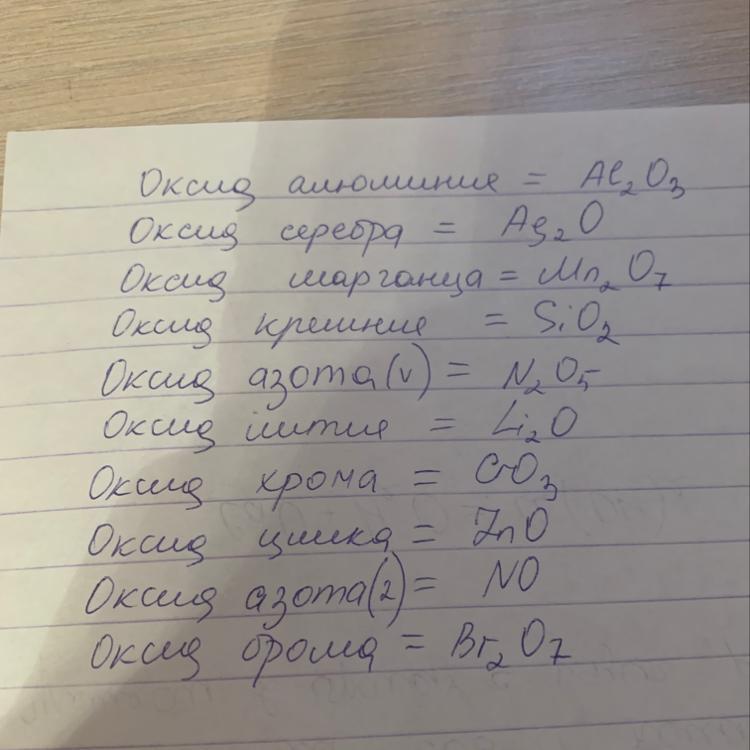 Оксид алюминия = Al₂O₃
Оксид серебра = Ag₂O
Оксид марганца = Mn₂O₇
Оксид кремния = SiO₂
Оксид азота (v) = N₂O₅
Оксид лития = Li₂O
Оксид хрома = CrO₃
Оксид цинка = ZnO
Оксид азота (2) = NO
Оксид брома = Br₂O₇